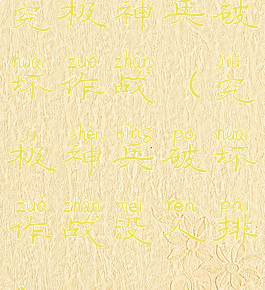 究极神兵破
huài zuò zhàn jiū
坏作战(究
jí shén bīng pò huài
极神兵破坏
zuò zhàn méi rén pái
作战没人排